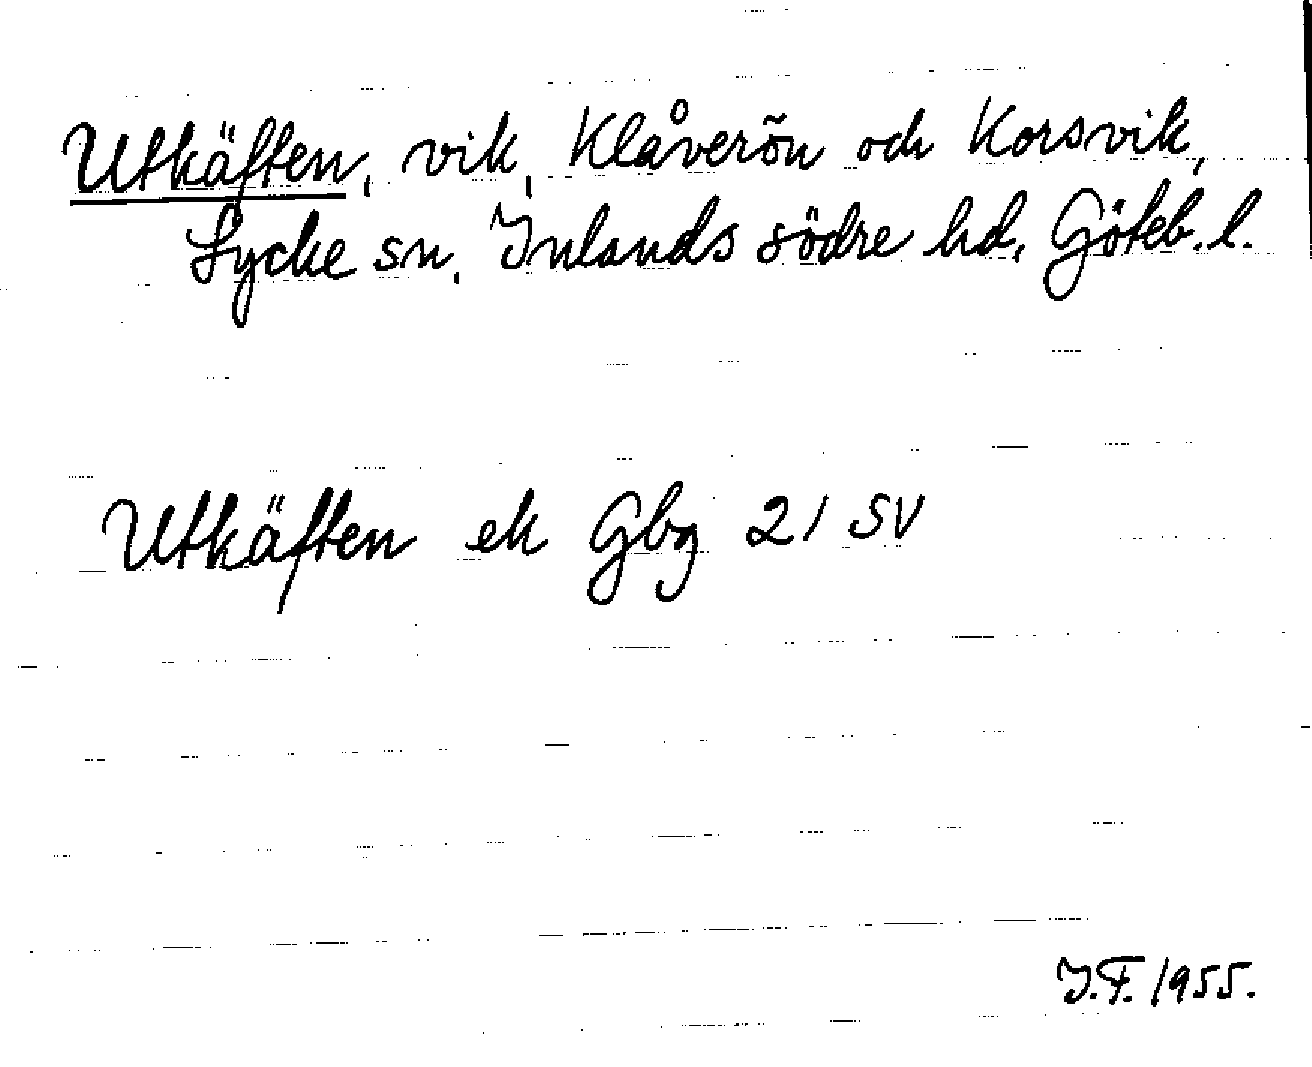 Utkäften, vik, Klåverön och Korsvik,
Lycke sn, Inlands södre hd, Göteb. l.
Utkäften ek Gbg 21 SV
I.F. 1955.